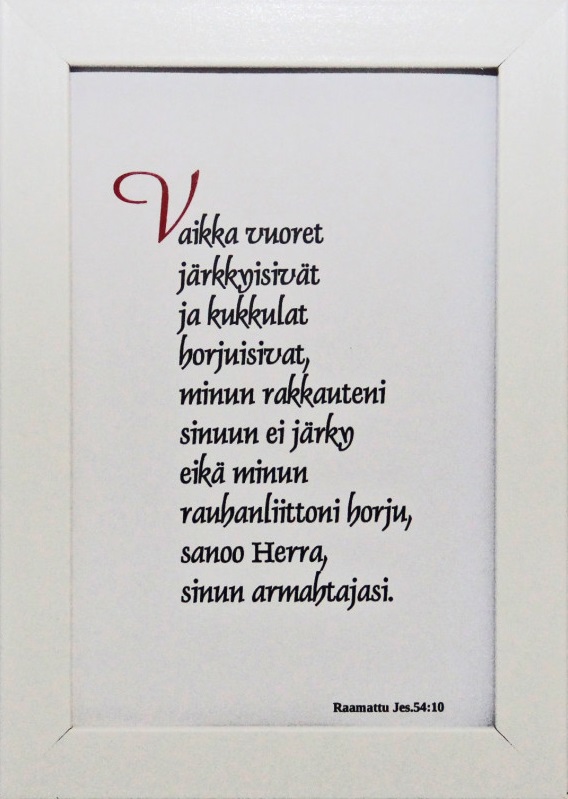 Vaikka vuoret
järkkyisivät
ja kukkulat
horjuisivat,
minun rakkauteni
sinuun ei järky
eikä minun
rauhanliittoni horju,
sanoo Herra,
sinun armahtajasi.
Raamattu Jes.54:10